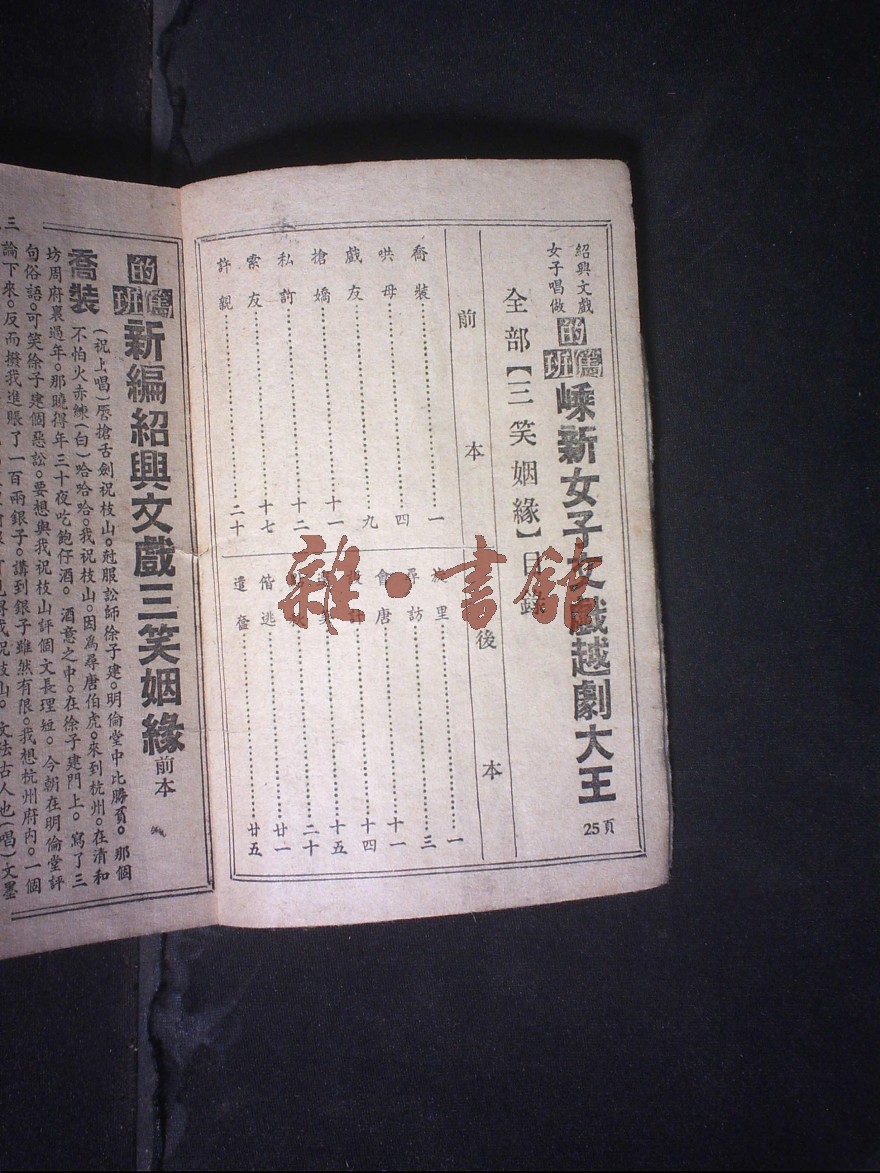 紹興文戲
女子唱做
的篤班
嵊新女子文戲越劇大王
25頁
全部【三笑姻緣】目錄
前本
喬裝 一
哄母 四
戲友 九
搶嬌 十一
私訂 十二
索友 十七
許親 二十
後本
里 一
尋訪 三
會唐 十一
十四
十五
二十
偕逃 廿一
遣 廿五
雜·書館
的篤班
新編紹興文戲三笑姻緣 前本
喬裝
(祝上唱)唇搶舌劍祝枝山。尅服訟師徐子建。明倫堂中比勝負。那個
不怕火赤練(白)哈哈哈。我祝枝山。因爲尋唐伯虎。來到杭州。在清和
坊周府裏過年。那曉得年三十夜吃飽仔酒。酒意之中。在徐子建門上。寫了三
句俗語。可笑徐子建個惡訟。要想與我祝枝山評個文長理短。今朝在明倫堂評
論下來。反而撥我進賬了一百兩銀子。講到銀子雖然有限。我想杭州府內。一個
三
祝枝山。文法古人也(唱)文墨